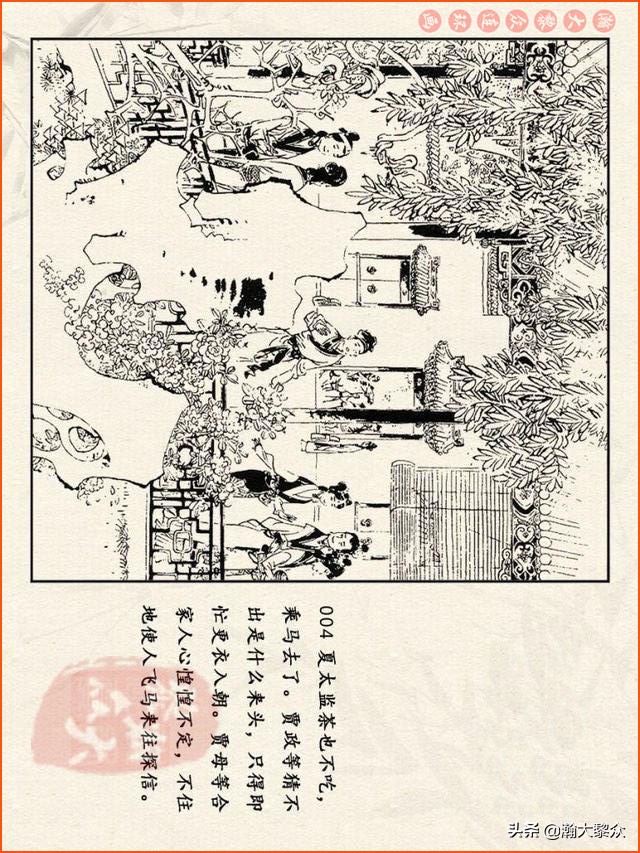 瀚大黎众连环画
004 夏太监茶也不吃，
乘马去了。贾政等猜不
出是什么来头，只得即
忙更衣入朝。贾母等合
家人心惶惶不定，不住
地使人飞马来往探信。
头条 @瀚大黎众